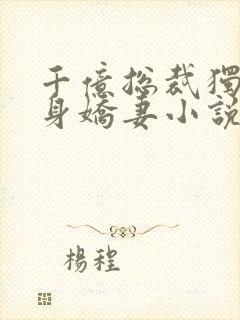 千億总裁獨
身嬌妻小說
楊程